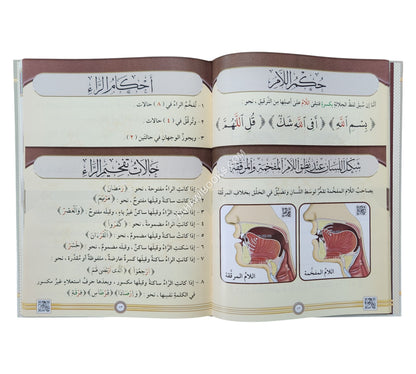 حُكْمُ اللَّامِ
أَمَّا إِنْ سُبِقَ لَفْظُ الجَلَالَةِ بِكَسْرَةٍ فَتَبْقَى اللَّامُ عَلَى أَصْلِهَا مِنَ التَّرْقِيقِ ، نَحْوُ
﴿ بِسْمِ اللَّهِ ﴾ ﴿ أَفِي اللَّهِ شَكٌّ ﴾ ﴿ قُلِ اللَّهُمَّ ﴾
شَكْلُ اللِّسَانِ عِنْدَ نُطْقِ اللَّامِ المُفَخَّمَةِ وَالمُرَقَّقَةِ
يُصَاحِبُ اللَّامَ المُفَخَّمَةَ تَقَعُّرٌ لِوَسَطِ اللِّسَانِ وَتَضْيِيقٌ فِي الحَلْقِ بِخِلَافِ المُرَقَّقَةِ
اللامُ المفخَّمة
اللامُ المرقَّقة
أَحْكَامُ الرَّاءِ
١ - تُفَخَّمُ الرَّاءُ فِي ( ٨ ) حَالَاتٍ .
٢ - وَتُرَقَّقُ فِي ( ٤ ) حَالَاتٍ .
٣ - وَيَجُوزُ الوَجْهَانِ فِي حَالَتَيْنِ ( ٢ )
حَالَاتُ تَفْخِيمِ الرَّاءِ
١ - إِذَا كَانَتِ الرَّاءُ مَفْتُوحَةً ، نَحْوُ : ﴿ رَمَضَانَ ﴾
٢ - إِذَا كَانَتْ سَاكِنَةً وَقَبْلَهَا مَفْتُوحٌ ، نَحْوُ : ﴿ مَرْيَمَ ﴾
٣ - إِذَا كَانَتْ سَاكِنَةً وَقَبْلَهَا سَاكِنٌ غَيْرُ يَاءٍ ، وَقَبْلَهُ مَفْتُوحٌ ، نَحْوُ : ﴿ وَالْعَصْرِ ﴾
٤ - إِذَا كَانَتِ الرَّاءُ مَضْمُومَةً ، نَحْوُ : ﴿ كَفَرُوا ﴾
٥ - إِذَا كَانَتْ سَاكِنَةً وَقَبْلَهَا مَضْمُومٌ ، نَحْوُ : ﴿ الْقُرْءَانُ ﴾
٦ - إِذَا كَانَتْ سَاكِنَةً وَقَبْلَهَا سَاكِنٌ وَقَبْلَهُ مَضْمُومٌ ، نَحْوُ : ﴿ خُسْرٍ ﴾
٧ - إِذَا كَانَتِ الرَّاءُ سَاكِنَةً وَقَبْلَهَا كَسْرَةٌ عَارِضَةٌ ، مَلْفُوظَةٌ أَوْ مُقَدَّرَةٌ ، نَحْوُ :
﴿ ارْجِعُوا ﴾ ﴿ الَّذِي ارْتَضَى لَهُمْ ﴾
٨ - إِذَا كَانَتِ الرَّاءُ سَاكِنَةً وَقَبْلَهَا مَكْسُورٌ ، وَبَعْدَهَا حَرْفُ اسْتِعْلَاءٍ غَيْرُ مَكْسُورٍ
فِي الكَلِمَةِ نَفْسِهَا ، نَحْوُ : ﴿ وَإِرْصَادًا ﴾ ﴿ قِرْطَاسٍ ﴾ ﴿ فِرْقَةٍ ﴾